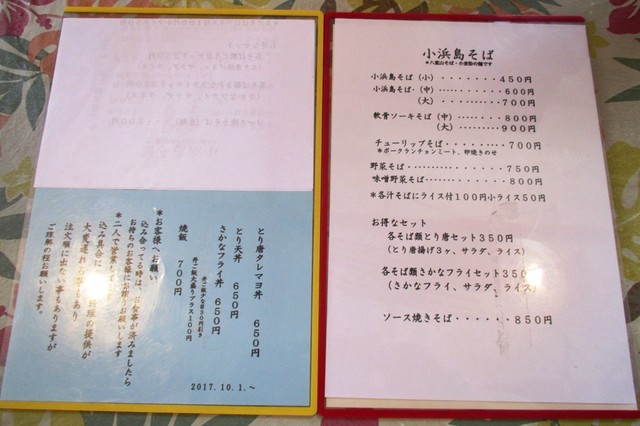 小浜島そば
*八重山そば・小麦粉の麺です
小浜島そば（小）・・・・・・・４５０円
小浜島そば・（中）‥‥‥・・６００円
（大）・・・・・・・７００円
軟骨ソーキそば（中）‥‥・・８００円
（大）‥‥‥‥・９００円
チューリップそば・・・・・・・７００円
*ポークランチョンミート、卵焼きのせ
野菜そば・‥‥‥‥‥‥・・７５０円
味噌野菜そば・・‥‥‥‥・・８００円
*各汁そばにライス付１００円小ライス５０円
お得なセット
各そば類とり唐セット３５０円
（とり唐揚げ３ヶ、サラダ、ライス）
各そば類さかなフライセット３５０円
（さかなフライ、サラダ、ライス）
ソース焼きそば・・・・・・８５０円
とり唐タレマヨ丼　６５０円
とり天丼　６５０円
さかなフライ丼　６５０円
丼ご飯少な目５０円引き
丼ご飯大盛りプラス１００円
焼飯　７００円
*お客様へお願い
込み合ってる時は、お食事が済みましたら
お待ちのお客様にお譲りお願いします
*二人で営業
込み具合に　料理の提供が
大変遅れる事もあり
注文順に出な　事もありますが
ご理解の程お願いします。
２０１７．１０．１．～